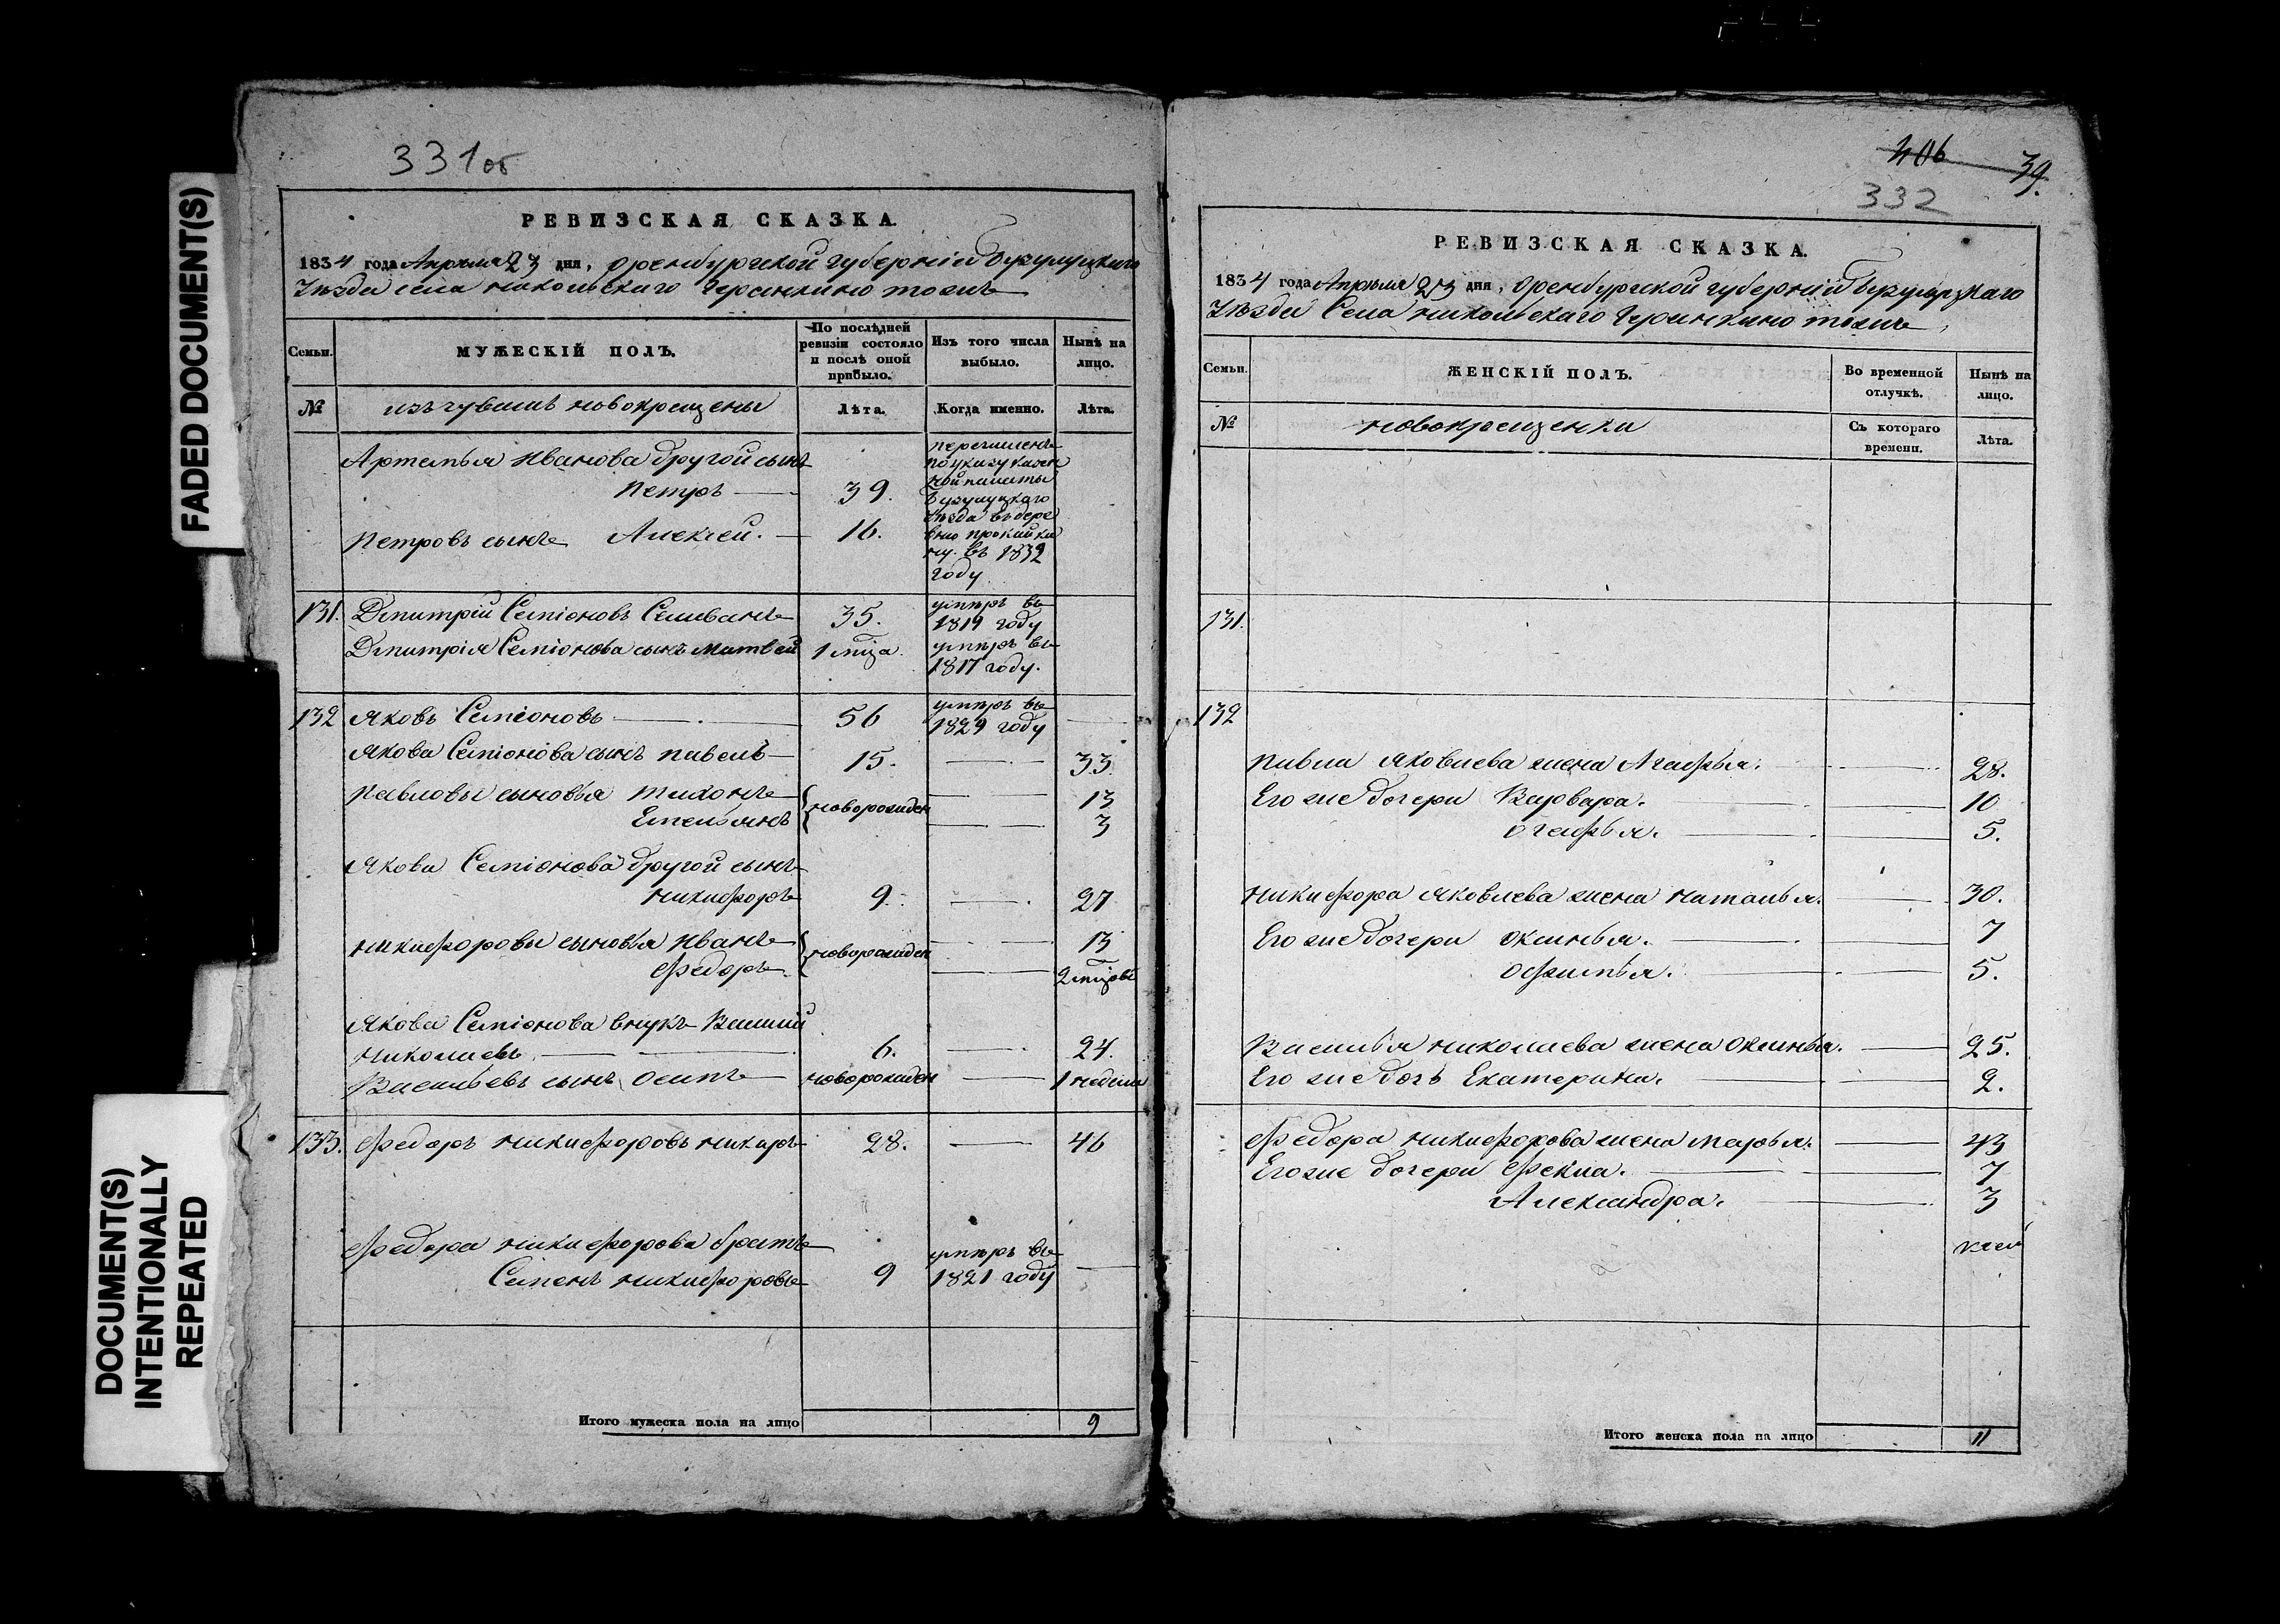 FADED DOCUMENT(S)
DOCUMENT(S)
INTENTIONALLY
REPEATED
331об
РЕВИЗСКАЯ СКАЗКА.
1834 года Апреля 23 дня, Оренбургской губернiи Бузулуцкаго
Уѣзда села Никольскаго Черинкино тожъ
Семьи.
МУЖЕСКІЙ ПОЛЪ.
По послѣдней ревизіи состояло и послѣ оной прибыло.
Изъ того числа выбыло.
Нынѣ на лицо.
№
изъ чувашъ новокрещены
Лѣта.
Когда именно.
Лѣта.
Артемья Иванова другой сынъ
Петръ 39.
Петровъ сынъ Алексей. 16.
перечисленъ
по указу казен
ной палаты
Бузулуцкаго
уѣзда в дере
вню
въ 1832
году
131. Дмитрiй Семiоновъ Селиванъ 35. умпръ въ 1819 году
Дмитрiя Семiонова сынъ Матвей 1 мца. умпръ въ 1817 году.
132 Яковъ Семiоновъ 56 умпръ въ 1829 году
Якова Семiонова сынъ Павелъ 15. 33.
Павловы сыновья Тихонъ новорожден 13
Емельянъ 3
Якова Семiонова другой сынъ
Никифоръ 9. 27
Никифоровы сыновья Иванъ новорожден 13
Федоръ. 2 мцовъ
Якова Семiонова внукъ Василий
Николаевъ 6. 24.
Васильевъ сынъ Осипъ новорожден 1 неделя
133. Федоръ Никифоровъ 28. 46
Федора Никифорова братъ
Семенъ Никифоровъ 9 умпръ въ 1821 году
Итого мужеска пола на лицо 9
406
39.
332
РЕВИЗСКАЯ СКАЗКА.
1834 года Апреля 23 дня, Оренбургской губернiи Бузулуцкаго
Уѣзда Села Никольскаго Черинкино тожъ
Семьи.
ЖЕНСКІЙ ПОЛЪ.
Во временной отлучкѣ.
Нынѣ на лицо.
№
новокрещенки
Съ котораго времени.
Лѣта.
131.
132
Павла Яковлева жена Агафья. 28.
Его же дочери Варвара. 10
Огафья. 5.
Никифора Яковлева жена Наталья. 30.
Его же дочери Оксинья. 7
Офимья. 5.
Василья Николаева жена Оксинья. 25.
Его же дочь Екатерина. 2.
Федора Никифорова жена Марья. 43
Его же дочери Фекла. 7
Александра. 3
Итого женска пола на лицо 11